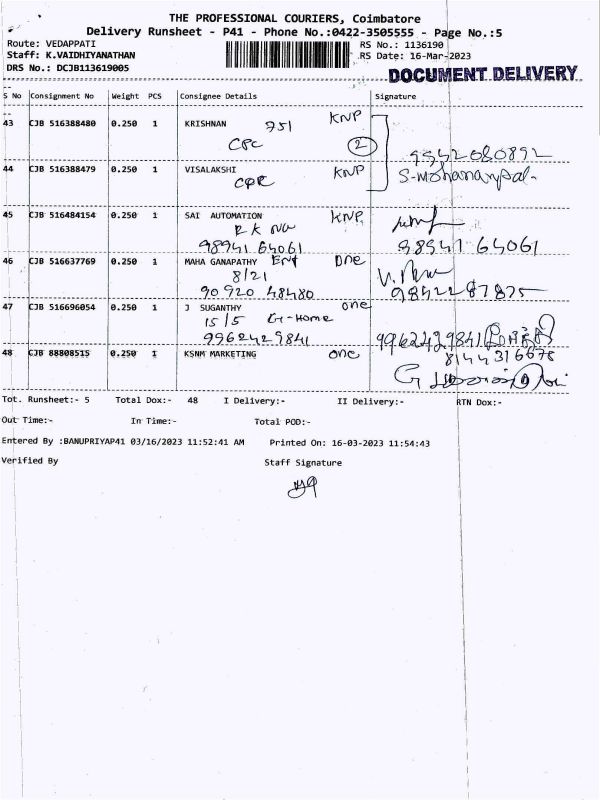 THE PROFESSIONAL COURIERS, Coimbatore
Delivery Runsheet - P41 - Phone No.:0422-3505555 - Page No.:5
Route: VEDAPPATI RS No.: 1136190
Staff: K.VAIDHIYANATHAN RS Date: 16-Mar-2023
DRS No.: DCJB113619005
DOCUMENT DELIVERY
S No Consignment No Weight PCS Consignee Details Signature
43 CJB 516388480 0.250 1 KRISHNAN 751 KNP
CPC 2
9542080892
44 CJB 516388479 0.250 1 VISALAKSHI KNP
CPC
45 CJB 516484154 0.250 1 SAI AUTOMATION KNP
R K
98941 64061 98941 64061
46 CJB 516637769 0.250 1 MAHA GANAPATHY Ent one
8/21
90920 48480 98422 87875
47 CJB 516696054 0.250 1 J SUGANTHY one
15/5 G-Home
9962429841 9962429841
48 CJB 88808515 0.250 1 KSNM MARKETING one 8144316678
Tot. Runsheet:- 5 Total Dox:- 48 I Delivery:- II Delivery:- RTN Dox:-
Out Time:- In Time:- Total POD:-
Entered By :BANUPRIYAP41 03/16/2023 11:52:41 AM Printed On: 16-03-2023 11:54:43
Verified By Staff Signature